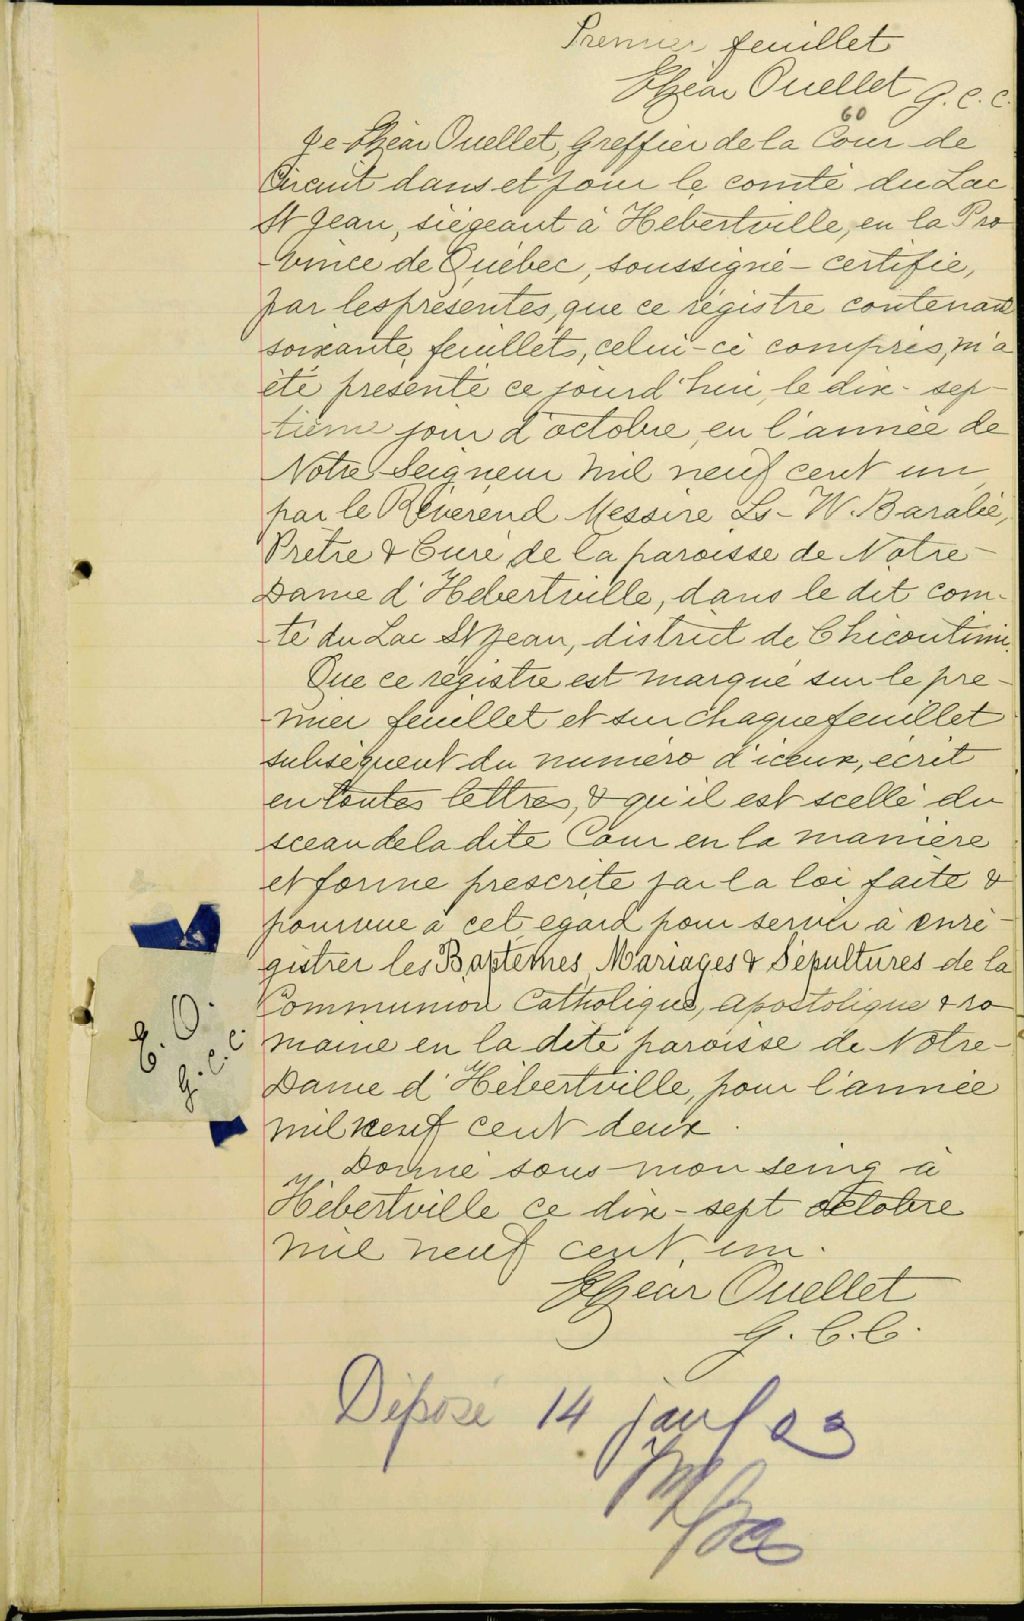 Premier feuillet
Elzéar Ouellet G. C. C.
60
Je Elzéar Ouellet, Greffier de la Cour de
Circuit dans et pour le comté du Lac
St Jean, siégeant à Hébertville, en la Pro
-vince de Québec, soussigné - certifie,
par les présentes, que ce régistre contenant
soixante feuillets, celui-ci compris, m'a
été présenté ce jourd'hui, le dix-sep-
-tième jour d'octobre en l'année de
Notre Seigneur mil neuf cent un
par le Révérend Messire Ls-W. Barabé,
Prêtre & Curé de la paroisse de Notre-
Dame d'Hébertville, dans le dit com-
-té du Lac St Jean, district de Chicoutimi.
Que ce régistre est marqué sur le pre-
-mier feuillet et sur chaque feuillet
subséquent du numéro d'iceux, écrit
en toutes lettres, & qu'il est scellé du
sceau de la dite Cour en la manière
et forme prescrite par la loi faite &
pourvue à cet egard pour servir à enré-
gistrer les Baptêmes, Mariages & Sépultures de la
Communion Catholique, apostolique & ro
maine en la dite paroisse de Notre-
Dame d'Hébertville, pour l'année
mil neuf cent deux.
Donné sous mon seing à
Hébertville ce dix-sept octobre
mil neuf cent un.
Elzéar Ouellet
G. C. C.
E. O.
G. C. C.
Déposé 14 janv 03